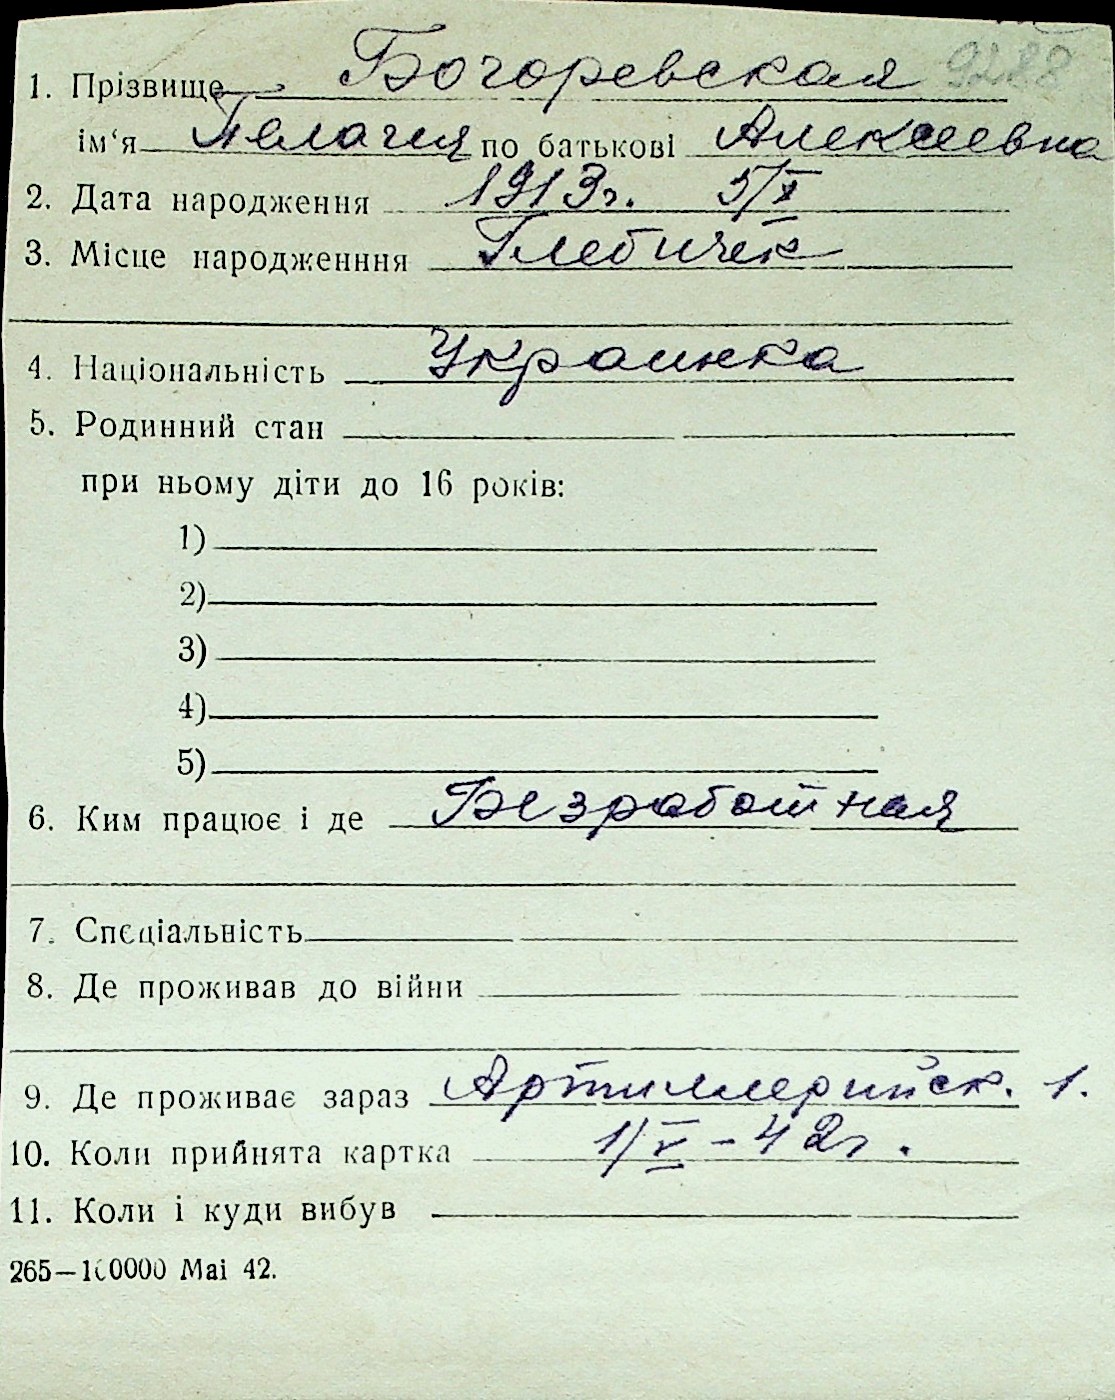 9288
1. Прізвище Богоревская
ім‘я Пелагея по батькові Алексеевна
2. Дата народження 1913г. 5/X
3. Місце народженння Глебичек
4. Національність Украинка
5. Родинний стан
при ньому діти до 16 років:
1)
2)
3)
4)
5)
6. Ким працює і де Безработная
7. Спеціальність
8. Де проживав до війни
9. Де проживає зараз Артиллерийск. 1.
10. Коли прийнята картка 1/V - 42г.
11. Коли і куди вибув
265—100000 Mai 42.